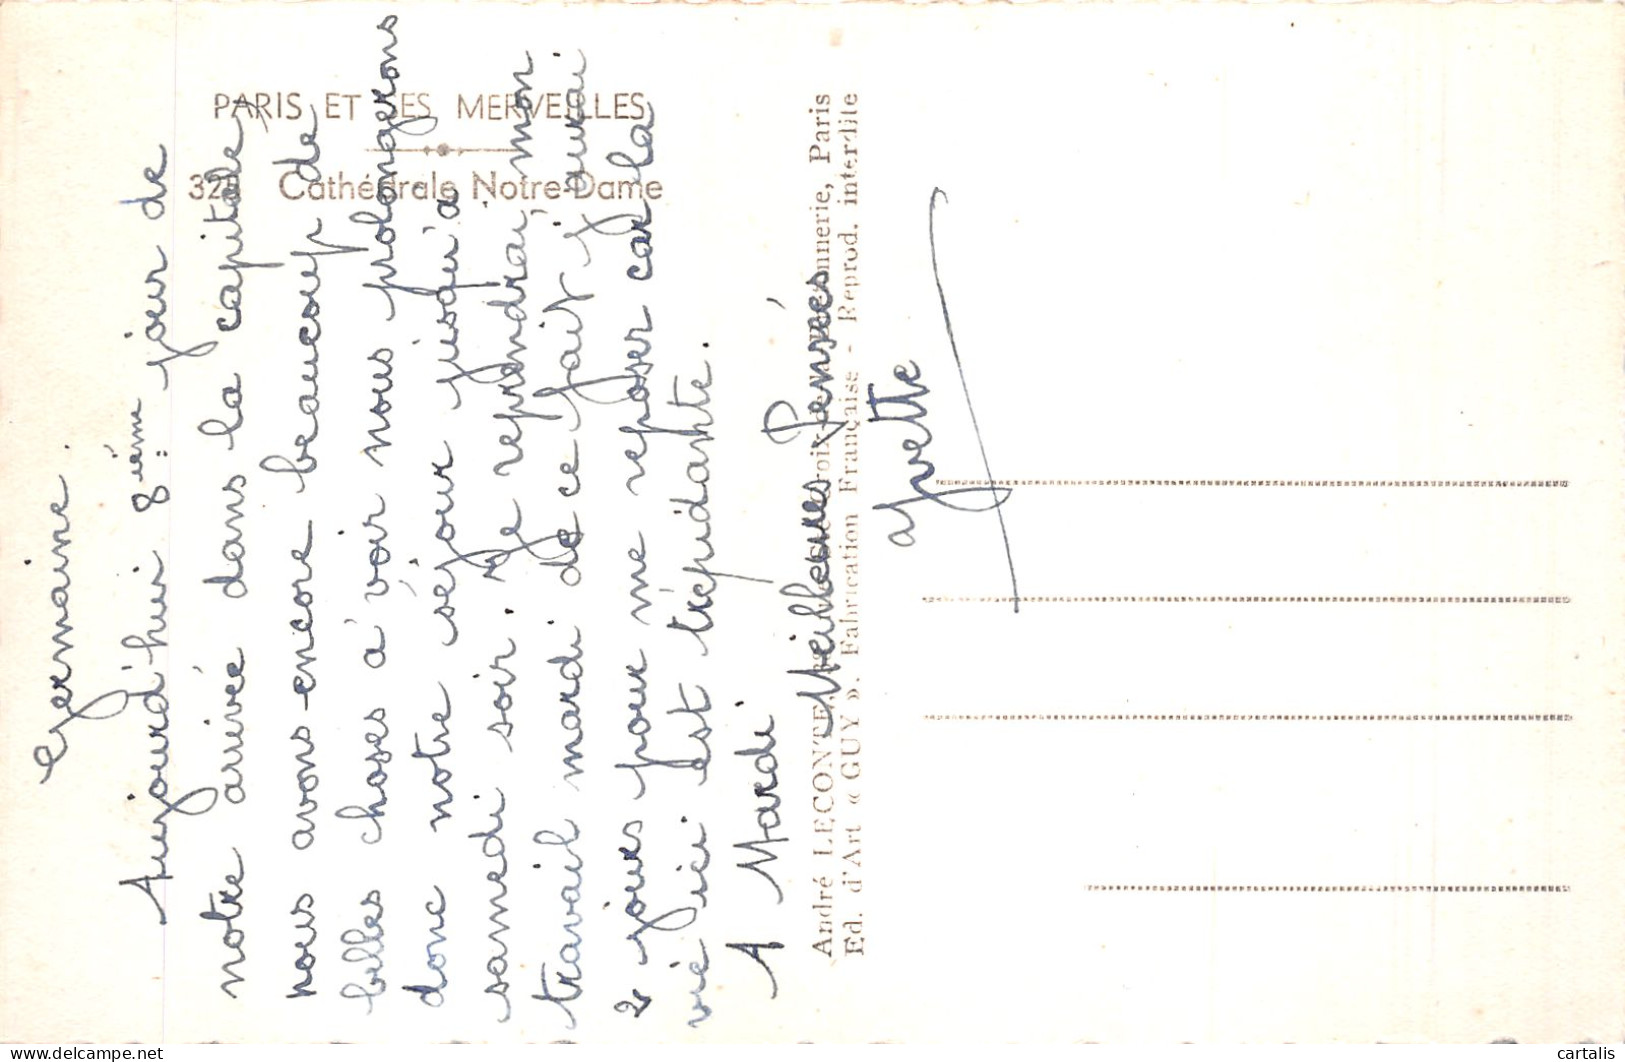 PARIS ET SES MERVEILLES
Cathédrale Notre-Dame
Germaine.
Aujourd'hui 8ième jour de
notre arrivée dans la capitale,
nous avons encore beaucoup de
belles choses à voir nous prolongerons
donc notre séjour jusqu'à
samedi soir. Je reprendrai mon
travail mardi de ce fait j'aurai
2 jours pour me reposer car la
vie ici est trépidante.
A Mardi
Meilleures Pensées
Yvette
André LECONTE, 38, Rue Croix-de-la-Bretonnerie, Paris
Ed. d'Art « GUY ». Fabrication Française - Reprod. interdite
cartalis
https://www.delcampe.net